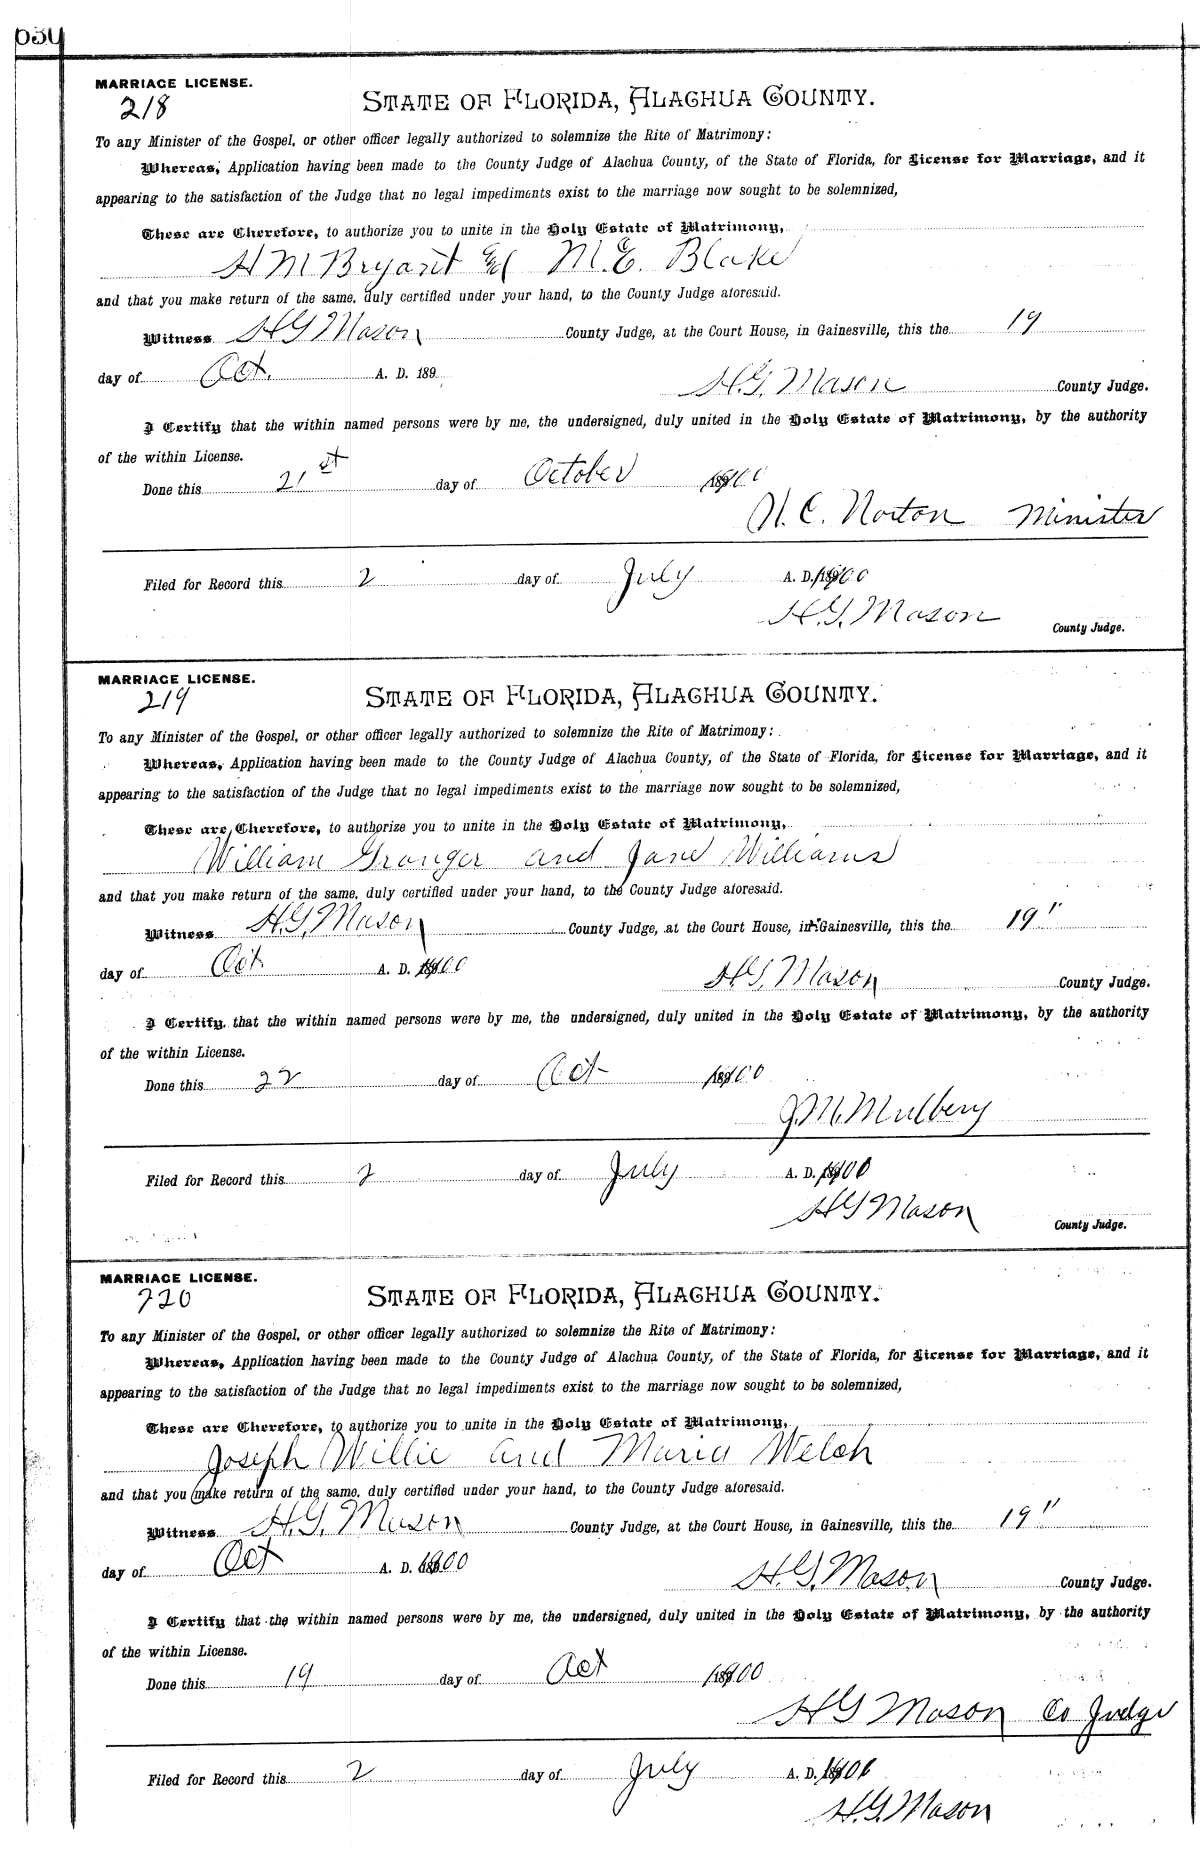 630
MARRIAGE LICENSE.
218
STATE OF FLORIDA, ALACHUA COUNTY.
To any Minister of the Gospel, or other officer legally authorized to solemnize the Rite of Matrimony:
Whereas, Application having been made to the County Judge of Alachua County, of the State of Florida, for License for Marriage, and it
appearing to the satisfaction of the Judge that no legal impediments exist to the marriage now sought to be solemnized,
These are Therefore, to authorize you to unite in the Holy Estate of Matrimony,
H M Bryant and M. E. Blake
and that you make return of the same, duly certified under your hand, to the County Judge aforesaid.
Witness H G Mason County Judge, at the Court House, in Gainesville, this the 19
day of Oct. A. D. 189
H. G. Mason County Judge.
I Certify that the within named persons were by me, the undersigned, duly united in the Holy Estate of Matrimony, by the authority
of the within License.
Done this 21st day of October 1900
H. C. Norton Minister
Filed for Record this 2 day of July A. D. 1900
H. G. Mason
County Judge.
MARRIAGE LICENSE.
219
STATE OF FLORIDA, ALACHUA COUNTY.
To any Minister of the Gospel, or other officer legally authorized to solemnize the Rite of Matrimony:
Whereas, Application having been made to the County Judge of Alachua County, of the State of Florida, for License for Marriage, and it
appearing to the satisfaction of the Judge that no legal impediments exist to the marriage now sought to be solemnized,
These are Therefore, to authorize you to unite in the Holy Estate of Matrimony,
William Granger and Jane Williams
and that you make return of the same, duly certified under your hand, to the County Judge aforesaid.
Witness H. G. Mason County Judge, at the Court House, in Gainesville, this the 19"
day of Oct A. D. 1900
H. G. Mason County Judge.
I Certify that the within named persons were by me, the undersigned, duly united in the Holy Estate of Matrimony, by the authority
of the within License.
Done this 22 day of Oct 1900
J. M. Mulbery
Filed for Record this 2 day of July A. D. 1900
H G Mason
County Judge.
MARRIAGE LICENSE.
220
STATE OF FLORIDA, ALACHUA COUNTY.
To any Minister of the Gospel, or other officer legally authorized to solemnize the Rite of Matrimony:
Whereas, Application having been made to the County Judge of Alachua County, of the State of Florida, for License for Marriage, and it
appearing to the satisfaction of the Judge that no legal impediments exist to the marriage now sought to be solemnized,
These are Therefore, to authorize you to unite in the Holy Estate of Matrimony,
Joseph Willie and Maria Welch
and that you make return of the same, duly certified under your hand, to the County Judge aforesaid.
Witness H. G. Mason County Judge, at the Court House, in Gainesville, this the 19"
day of Oct A. D. 1900
H. G. Mason County Judge.
I Certify that the within named persons were by me, the undersigned, duly united in the Holy Estate of Matrimony, by the authority
of the within License.
Done this 19 day of Oct 1900
H G Mason Co Judge
Filed for Record this 2 day of July A. D. 1901
H. G. Mason